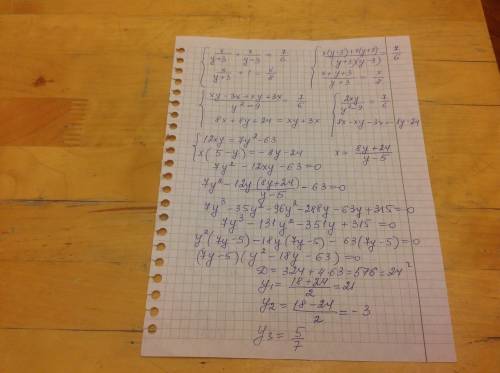 { x/(y+3) + x/(y-3) = 7/6   { (x(y-3)+x(y+3))/((y+3)(y-3)) = 7/6
{ x/(y+3) + 1 = x/8   { (x+y+3)/(y+3) = x/8
{ (xy-3x+xy+3x)/(y²-9) = 7/6   { 2xy/(y²-9) = 7/6
{ 8x+8y+24 = xy+3x   8x-xy-3x=-8y-24
{ 12xy = 7y²-63
{ x(5-y) = -8y-24   x = (8y+24)/(y-5)
7y²-12xy-63=0
7y²-12y(8y+24)/(y-5) -63=0
7y³-35y²-96y²-288y-63y+315=0
7y³-131y²-351y+315=0
y²(7y-5)-18y(7y-5)-63(7y-5)=0
(7y-5)(y²-18y-63)=0
D=324+4·63=576=24²
y₁=(18+24)/2=21
y₂=(18-24)/2=-3
y₃=5/7